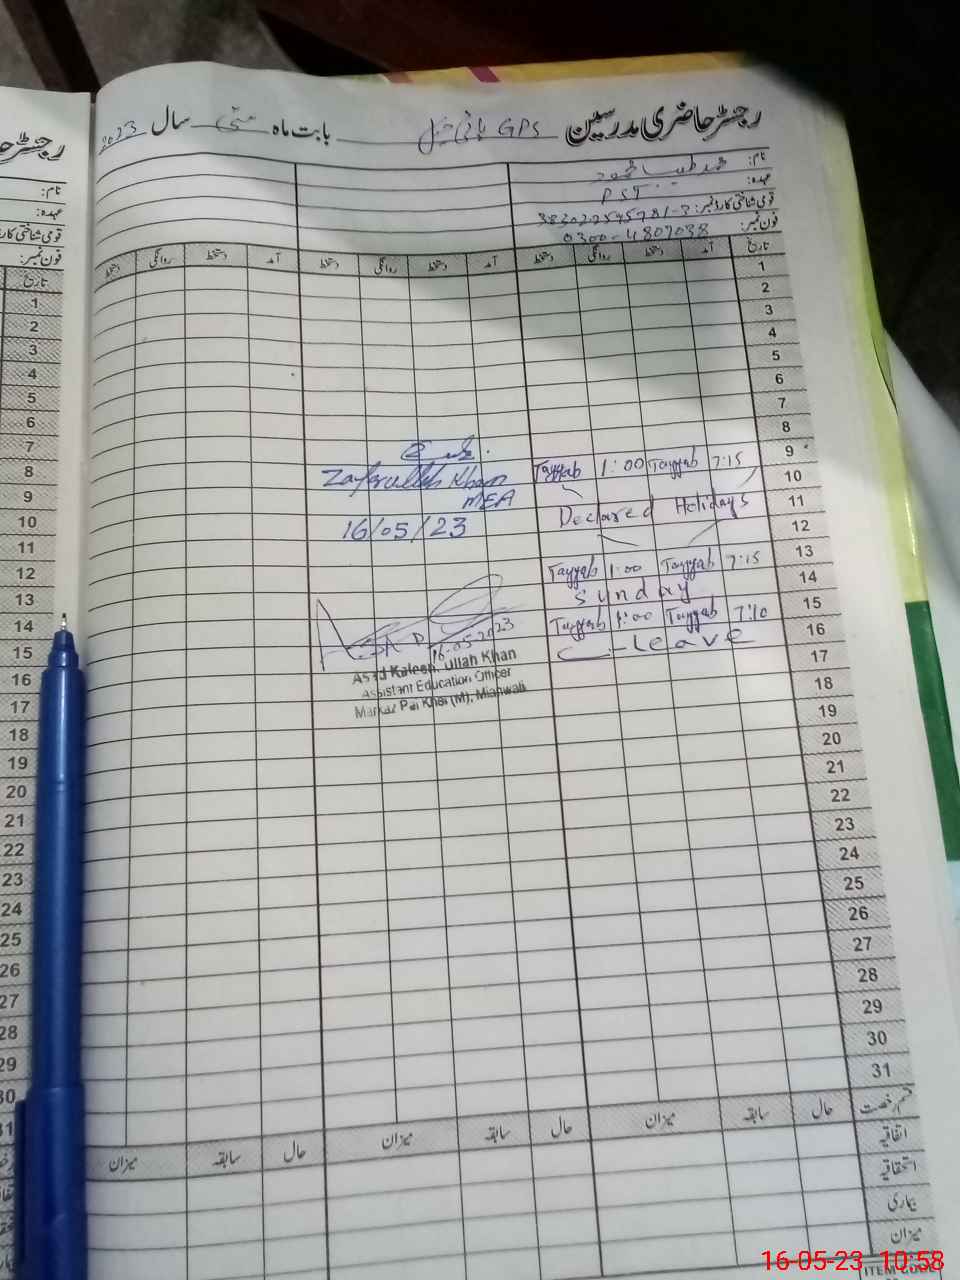 رجسٹر حاضری مدرسین GPS بابت ماہ مئی سال 2023
نام:
عہدہ: PST
قومی شناختی کارڈ نمبر:
فون نمبر: 0300-4807038
تاریخ آمد دستخط روانگی دستخط آمد دستخط روانگی دستخط آمد دستخط روانگی دستخط
1
2
3
4
5
6
7
8
9 7:15 Tayyab 1:00 Tayyab
10
11 Declared Holidays
12
13 7:15 Tayyab 1:00 Tayyab
14 Sunday
15 7:10 Tayyab 1:00 Tayyab
16 C-Leave
17
18
19
20
21
22
23
24
25
26
27
28
29
30
31
Zaferullah Khan
MEA
16/05/23
16.05.2023
Asad Kaleem Ullah Khan
Assistant Education Officer
Markaz Pai Khel (M), Mianwali
قسم رخصت حال سابقہ میزان حال سابقہ میزان حال سابقہ میزان
اتفاقیہ
استحقاقیہ
بیماری
میزان
ITEM CODE
رجسٹر حا
نام:
عہدہ:
قومی شناختی کار
فون نمبر:
تاریخ
1
2
3
4
5
6
7
8
9
10
11
12
13
14
15
16
17
18
19
20
21
22
23
24
25
26
27
28
29
30
31
16-05-23 10:58